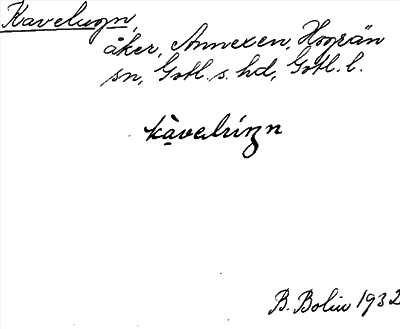 Kavelugn,
åker, Annexen, Hogrän
sn, Gotl. s. hd, Gotl. l.
B. Bolin 1932